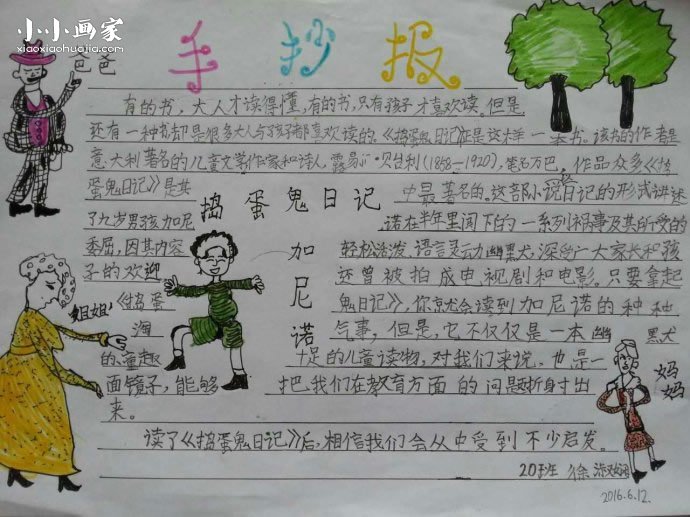 小小画家
xiaoxiaohuajia.com
手抄报
爸爸
有的书，大人才读得懂，有的书，只有孩子才喜欢读。但是
还有一种书却是很多大人与孩子都喜欢读的。《捣蛋鬼日记》正是这样一本书。该书的作者是
意大利著名的儿童文学作家和诗人，露易
·贝台利(1858—1920)，笔名万巴，作品众多《捣
蛋鬼日记》是其
中最著名的。这部小说以日记的形式讲述
了九岁男孩加尼
诺在半年里闯下的一系列祸事及其所受的
委屈，因其内容
轻松活泼，语言灵动幽默，深受广大家长和孩
子的欢迎
还曾被拍成电视剧和电影。只要拿起
《捣蛋
鬼日记》，你就会读到加尼诺的种种
淘
气事，但是，它不仅仅是一本幽默
的、童趣
十足的儿童读物，对我们来说，也是一
面镜子，能够
把我们在教育方面的问题折射出
来。
捣蛋鬼日记
加尼诺
姐姐
妈妈
读了《捣蛋鬼日记》后，相信我们会从中受到不少启发。
徐
2016.6.12.